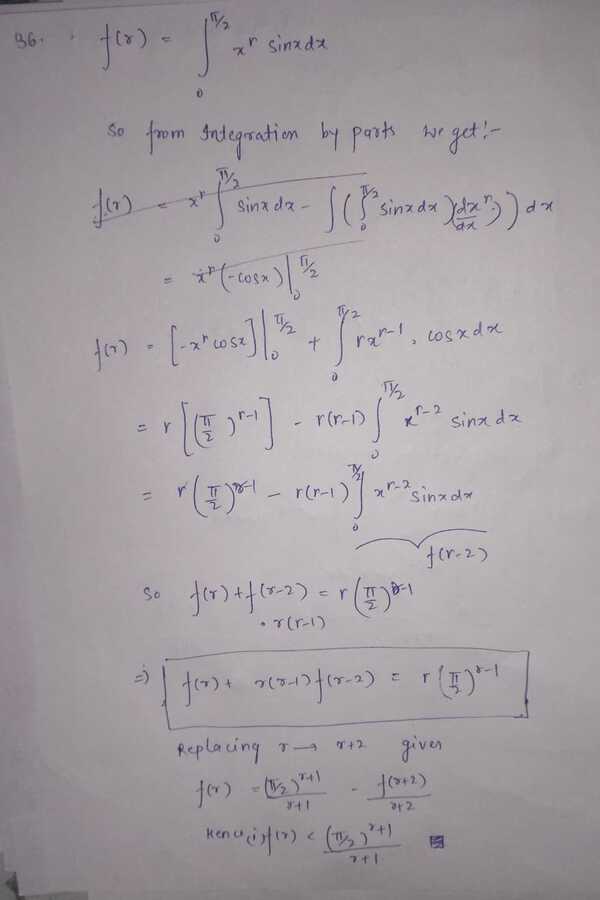 36. f(r) = ∫₀^{π/2} x^r sinx dx
So from Integration by parts we get:-
f(r) = x^r ∫₀^{π/2} sinx dx - ∫ ( ∫₀^{π/2} sinx dx )(dx^r/dx) ) dx
= x^r (-cosx) |₀^{π/2}
f(r) = [-x^r cosx] |₀^{π/2} + ∫₀^{π/2} r x^{r-1} . cosx dx
= r [ (π/2)^{r-1} ] - r(r-1) ∫₀^{π/2} x^{r-2} sinx dx
= r (π/2)^{r-1} - r(r-1) ∫₀^{π/2} x^{r-2} sinx dx
f(r-2)
So f(r) + f(r-2) = r (π/2)^{r-1}
. r(r-1)
=) f(r) + r(r-1) f(r-2) = r (π/2)^{r-1}
Replacing r → r+2 gives
f(r) = (π/2)^{r+1} / r+1 - f(r+2) / r+2
Hence, f(r) < (π/2)^{r+1} / r+1